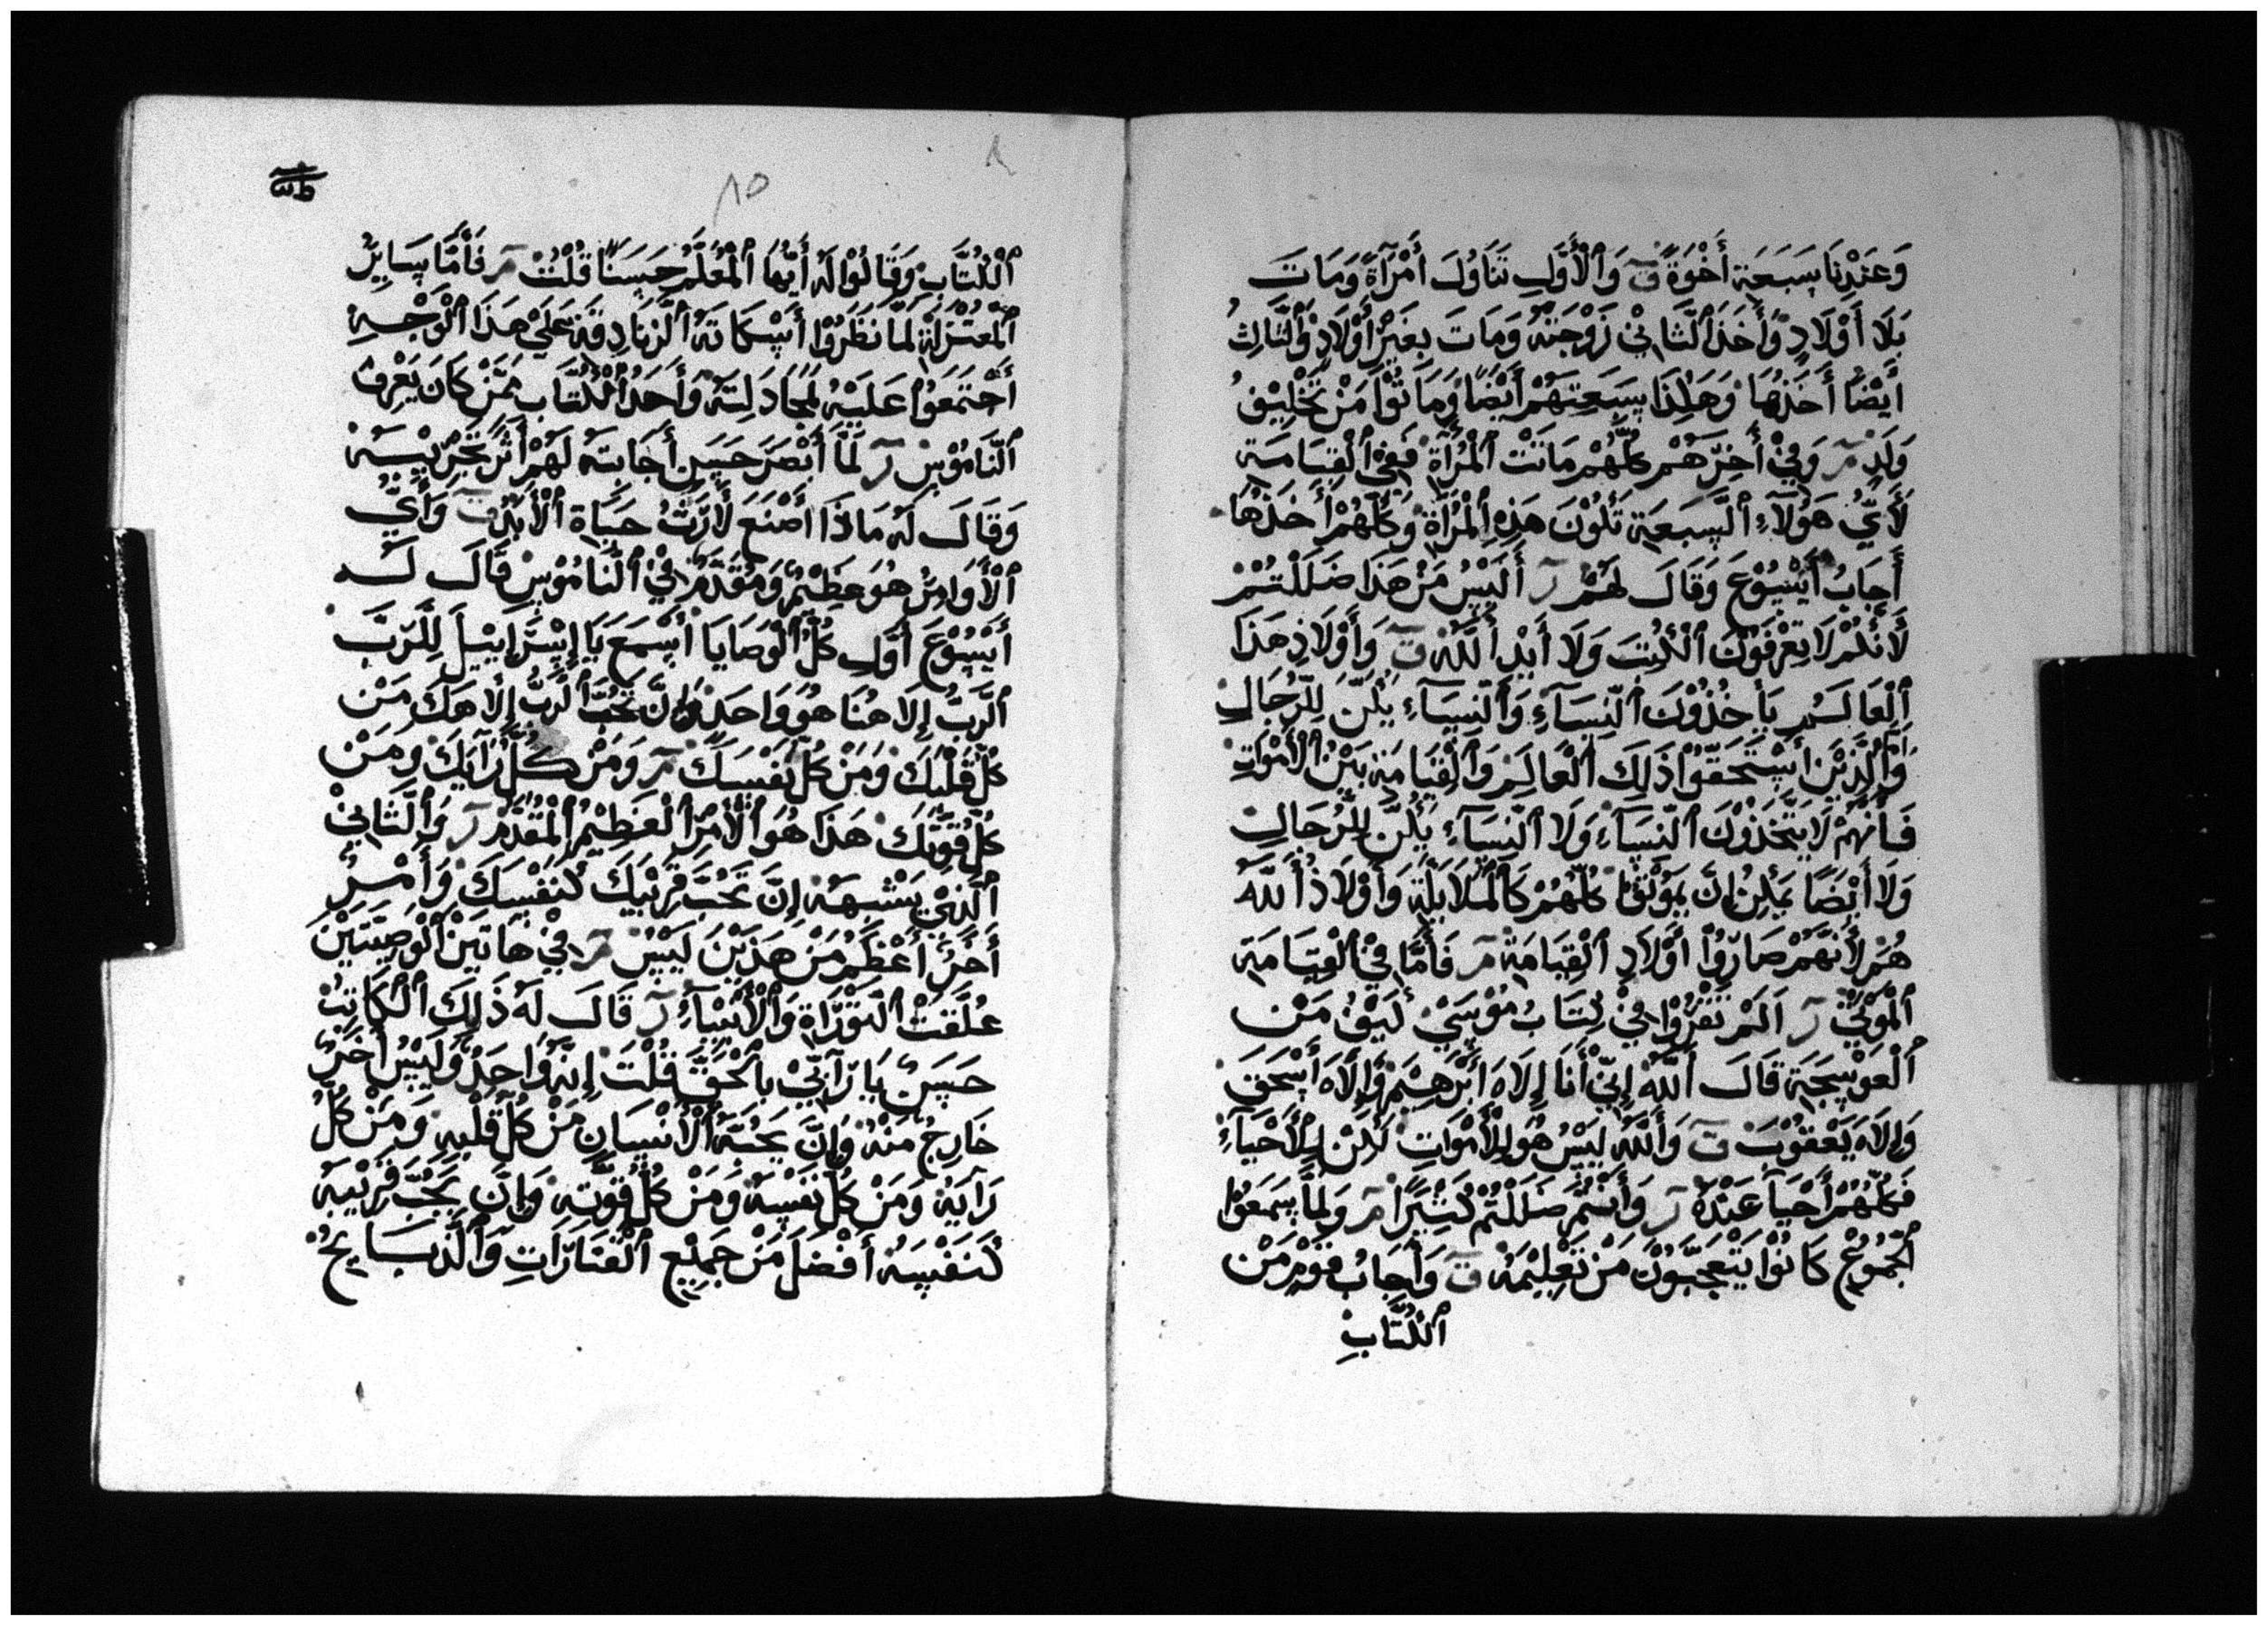 وَعَنْدِنَا سَبَعَة أَخْوَةً ق وَٱلْأَوَّلِ تَنَاوُلَ أَمْرَآةً وَمَاتَ
بَلَا أَوْلَادٍ وَأَخَذَ ٱلثَّانِيْ زَوْجَتَهُ وَمَاتَ بِغَيْرِ أَوْلَادٍ وَٱلثَّالِثُ
أَيْضًا أَخَذَهَا وَهَكَذَا سَبَعِتهَمْ أَيْضًا وَمَاتُوْا مَنْ تَخْلِيْفُ
وَلَدٍ مر وَفِيْ أَخِرّهَمْ كُلّهُمْ مَاتَتْ ٱلْمَرْآَةُ فَفِيْ ٱلْقِيَامَة
لَأَيّ هَوُلَآءِ ٱلسَبعَة تَكُوْنَ هَذِهِ ٱلْمَرْآَةُ وَكُلّهُمْ أَخَذُهَا
أَجَابُ أَيْسُوْعَ وَقَالَ لهَمْ ر أَلَيْسُ مَنْ هَذَا ضَلَلْتُمْ
لَأَنكُمْ لَا تِعْرَفَوْنَ ٱلْكُتبَ وَلَا أَيْدِ أَللَّه ق وَأَوْلَادِ هَذَا
ٱلْعَالَمِ يَأخُذُوْنَ ٱلنّسَآءِ وَٱلنّسَآءِ يَكُنّ لِلرّجَالِ
وَٱلَّذِيْنَ أَسْتَحَقّوْا ذَلِكَ ٱلْعَالِمِ وَٱلْقِيَامَة بَيْنُ ٱلْأَمْوَاتِ
فَأَنهُمْ لَا يَتّخَذُوْنَ ٱلنّسَآءِ وَلَا ٱلنّسَآءِ يَكُنّ لِلرّجَالِ
وَلَا أَيْضًا يَمْكِنُ إنَّ يَمَوْتُوْا كُلّهُمْ كَٱلْمَلَايَكَة وَأَوْلَادُ أَللَّهُ
هُمْ لَأَنهَّمْ صَارّوْا أَوْلَادِ ٱلْقِيَامَة مر فَأَمَّا فِيْ ٱلْقِيَامَة
ٱلْمَوْتَيْ ر أَلَمْ تَقرَوْا فِيْ كِتَابُ مُوْسَيْ كَيْفُ مَنْ
ٱلْعَوْسَجَة قَالَ أَللَّهُ إنِيّ أَنَا إلَاهَ أَبْرَهِيْمَ وَإلَاهَ أَسْحَقَ
وَإلَاهَ يَعْقَوْبَ ق وَأَللَّهُ لَيْسُ هُوَ إلَاْأَمْوَاتِ لَكِنْ إلَاْأَحْيَآءِ
فَكُلّهُمْ أَحْيَآ عَنْدُهُ ر وَأَنْتُمْ ضَلَلْتُمْ كَثِيْرًا مر وَلَمَّا سَمَعَوْا
ٱلْجُمُوْعُ كَانُوْا يَتْعَجّبوْنَ مَنْ تَعِلِيْمَهُ ق وَأَجَابُ قوْمٍ مَنْ
ٱلْكُتَّابِ
٨٥
ٱلْكُتَّابِ وَقَالُوْا لَهُ أَيّهَا ٱلْمُعَلّمُ حَسَنًا قُلْتُ مر فَأَمَّا سَايِرُ
ٱلْمَعْتَزِلَةِ لَمَّا نَظَرُوْا أَسْكَاتَهُ ٱلزَّنَادِقَة عَلَيْ هَذَا ٱلْوَجْهِ
أَجْتَمَعَوْا عَلَيْهُ لَمُجَادَلِتَهُ وَأَحَدُ ٱلْكُتَّابِ مَمّنْ كَانَ يَعْرِفُ
ٱلنَّامُوْسِ ر لَمَّا أَبْصَرَ حَسَنِ أَجَابَتهُ لَهُمْ أَثَرَ تَجْرّيْبهُ
وَقَالَ لَهُ مَاذَا أَصْنَعَ لَأَرَثُ حَيَاةِ ٱلْأَبَدُ ق وَأَيّ
ٱلْأَوَامِرُ هُوَ عَظِيْمٌ وَمُقَدَّمُ فِيْ ٱلنَّامُوْسِ قَالَ لَهُ
أَيْسُوْعَ أَوَّلِ كُلّ ٱلْوَصَايَا أَسْمَعَ يَا إسْرَإيْيلَ لِلرَّبَّ
ٱلرَّبُّ إلَاهنَا هُوَ وَاحَدٌ وَإنَّ تَحُبَّ ٱلرَبُّ إلَاهَكَ مَنْ
كُلّ قَلْبَكَ وَمَنْ كُلّ نَفْسَكَ مر وَمَنْ كُلّ رَايَكَ وَمَنْ
كُلّ قُوَّتكَ هَذَا هُوَ ٱلْأَمْرُ ٱلْعَظِيْمُ ٱلْمُقَدَّمُ ر وَٱلثَّانِيْ
ٱلَّذِيْ يَشْبهَهُ إنَّ تَحُبّ قَرَيْبَكَ كَنفْسَكَ وَأَمْرُ
أَخَرُ أَعْظَمُ مَنْ هَذَيْنَ لَيْسُ مر فِيْ هَاتَيْن ٱلْوَصِيّتَيْن
عُلَّقَتْ ٱلتوْرَّاةِ وَٱلْأَنْبيَآءِ ر قَالَ لَهُ ذَلِكَ ٱلْكَاتِبُ
حَسَنٌ يَارّابّيْ بٱلْحَقّ قُلْتَ إنهَّ وَاحَدٌ وَلَيْسُ أَخَرُ
خَارِجُ مَنْهُ وَإنَّ يَحُبَّهُ ٱلْأنْسَانِ مَنْ كُلّ قَلْبِهِ وَمَنْ كُلّ
رَايَهُ وَمَنْ كُلّ نَفْسهُ وَمَنْ كُلّ قُوَّتِهِ وَإنَّ يَحُبّ قَرَيْبهُ
كَنفْسهُ أَفْضَلَ مَنْ جَمِيْعِ ٱلْقنَارَاتِ وَٱلذَّبَايحُ